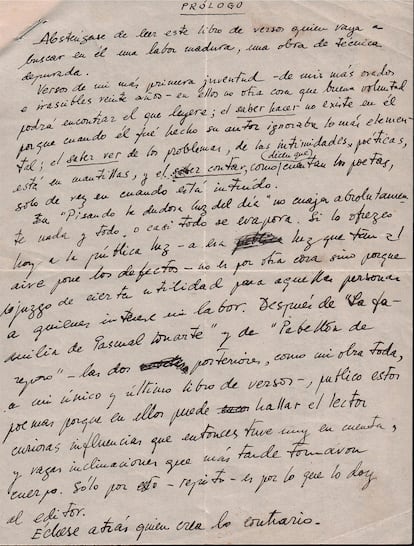 PRÓLOGO
Absténgase de leer este libro de versos quien vaya a
buscar en él una labor madura, una obra de técnica
depurada.
Versos de mi más primera juventud - de mis más osados
e irascibles veinte años - en ellos no otra cosa que buena voluntad
podrá encontrar el que leyere; el saber hacer no existe en él
porque cuando él fué hecho su autor ignoraba lo más elemen-
tal; el saber ver de los problemas, de las intimidades poéticas,
está en mantillas, y el saber contar, como (dicen que) cuentan los poetas,
solo de vez en cuando está intuido.
En "Pisando la dudosa luz del día" no cuaja absolutamen
te nada y todo, o casi todo se evapora. Si lo ofrezco
hoy a la pública luz - a esa luz que tan al
aire pone los defectos - no es por otra cosa sino porque
lo juzgo de cierta utilidad para aquellas personas
a quienes interese mi labor. Después de "La fa-
milia de Pascual Duarte" y de "Pabellón de
reposo" - las dos posteriores, como mi obra toda,
a mi único y último libro de versos -, publico estos
poemas porque en ellos puede hallar el lector
curiosas influencias que entonces tuve muy en cuenta,
y vagas inclinaciones que más tarde tomaron
cuerpo. Sólo por esto - repito - es por lo que lo doy
al editor.
Échese atrás quien crea lo contrario.